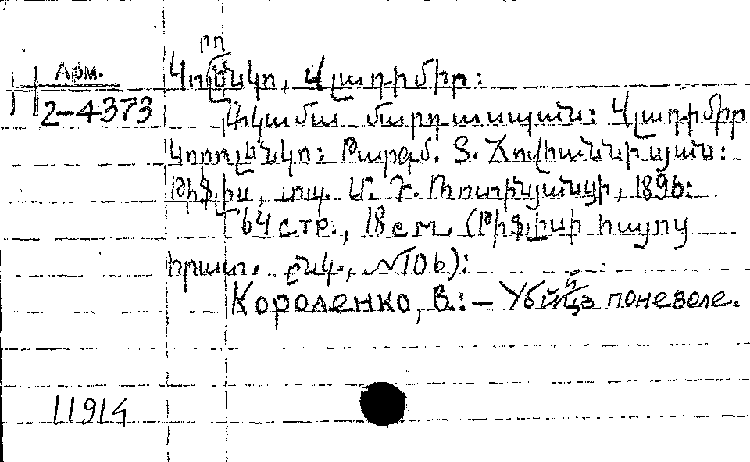 Арм.
2-4373
Կոռլենկո, Վլադիմիր:
Ակամա մարդասպան: Վլադիմիր
Կոռոլենկո: Թարգմ. Տ. Հովհաննիսյան:
Թիֆլիս, տպ. Մ. Դ. Ռոտինյանցի, 1896:
64 стр., 18 см. (Թիֆլիսի հայոց
հրատ. ընկ., №106):
Короленко, В.: – Убийца поневоле.
11914